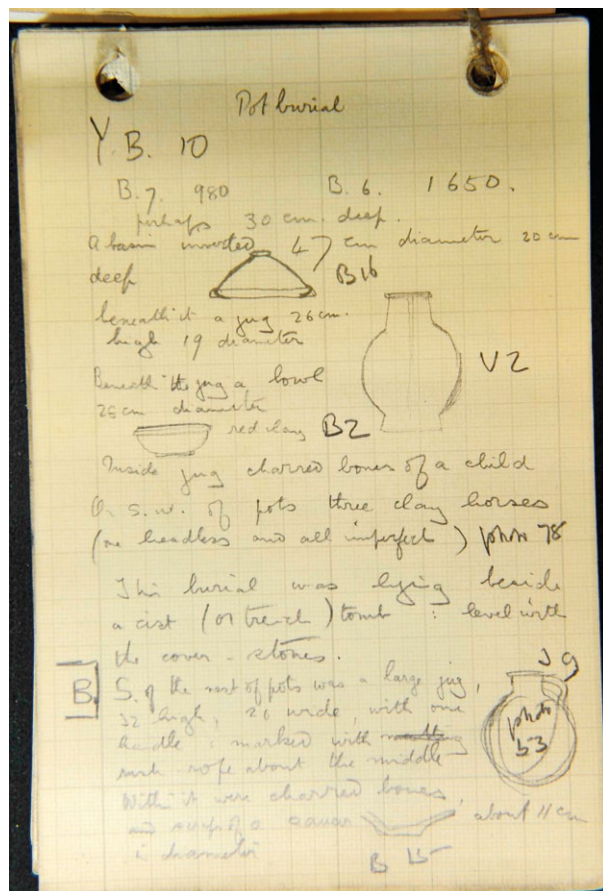 Pot burial
Y.B. 10
B.7. 980 B.6. 1650.
perhaps 30 cm. deep.
A basin inverted 47 cm diameter 20 cm
deep B16
beneath it a jug 26 cm.
high 19 diameter
V2
Beneath the jug a bowl
25 cm diameter
red clay B2
Inside jug charred bones of a child
On S.W. of pots three clay horses
(one headless and all imperfect) photo 78
This burial was lying beside
a cist (or trench) tomb : level with
the cover-stones.
J9
B. S. of the nest of pots was a large jug,
32 high, 26 wide, with one
handle : marked with
such rope about the middle
photo 53
Within it were charred bones,
and of a about 11 cm
in diameter
B 15